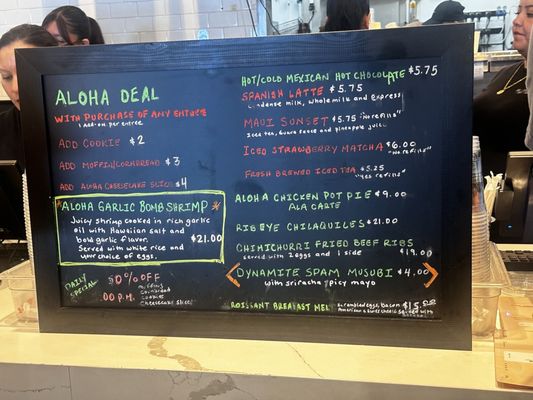 ALOHA DEAL
WITH PURCHASE OF ANY ENTREE
1 add-on per entree
ADD COOKIE $2
ADD MUFFIN/CORNBREAD $3
ADD ALOHA CHEESECAKE SLICE $4
ALOHA GARLIC BOMB SHRIMP
Juicy shrimp cooked in rich garlic
oil with Hawaiian salt and
bold garlic flavor.
Served with white rice and
your choice of eggs.
$21.00
DAILY SPECIAL
50% OFF
.00 P.M.
muffins
cornbread
cookies
cheesecake slices
HOT/COLD MEXICAN HOT CHOCOLATE $5.75
SPANISH LATTE $5.75
condense milk, whole milk and express
MAUI SUNSET $5.75 "No refills"
Iced tea, guava sauce and pineapple juice
ICED STRAWBERRY MATCHA $6.00
"No refills"
FRESH BREWED ICED TEA $5.25
"Yes refills"
ALOHA CHICKEN POT PIE $9.00
ALA CARTE
RIB EYE CHILAQUILES $21.00
CHIMICHURRI FRIED BEEF RIBS
served with 2 eggs and 1 side $19.00
DYNAMITE SPAM MUSUBI $4.00
with sriracha spicy mayo
ROISSANT BREAKFAST MEL scrambled eggs, bacon $15
American & Swiss cheese served with